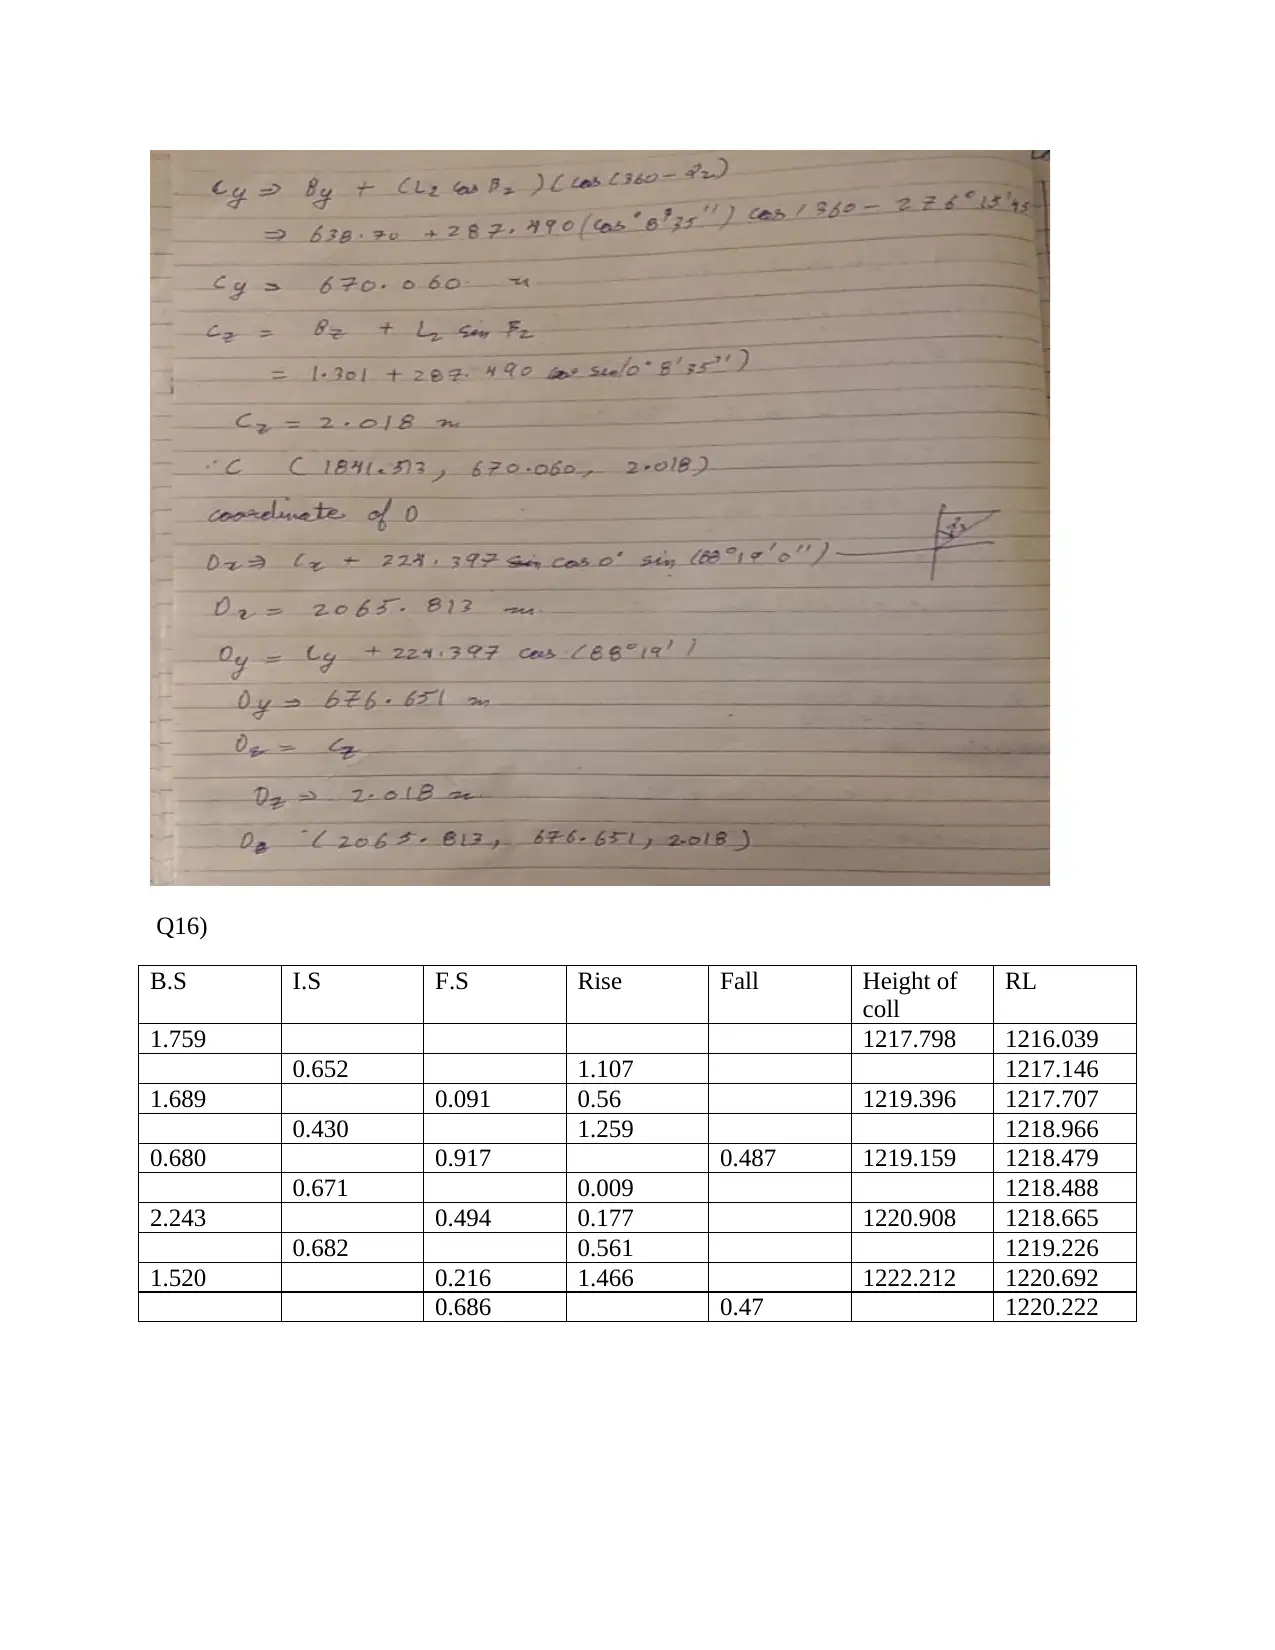 Cy ⇒ By + (L2 cos B2) (cos (360 -
⇒ 638.70 + 287.490 (cos 0° 8' 35'') cos (360 - 276° 15' 45
Cy ⇒ 670.060 m
Cz = Bz + L2 sin
= 1.301 + 287.490 sin (0° 8' 35'')
Cz = 2.018 m
∴ C ( 1841.513, 670.060, 2.018)
coordinate of D
Dx ⇒ Cx + 224.397 cos 0° sin (88° 19' 0'')
Dx = 2065.813 m
Dy = Cy + 224.397 cos (88° 19')
Dy ⇒ 676.651 m
Dz = Cz
Dz ⇒ 2.018 m
D (2065.813, 676.651, 2.018)
Q16)
B.S I.S F.S Rise Fall Height of coll RL
1.759 1217.798 1216.039
0.652 1.107 1217.146
1.689 0.091 0.56 1219.396 1217.707
0.430 1.259 1218.966
0.680 0.917 0.487 1219.159 1218.479
0.671 0.009 1218.488
2.243 0.494 0.177 1220.908 1218.665
0.682 0.561 1219.226
1.520 0.216 1.466 1222.212 1220.692
0.686 0.47 1220.222